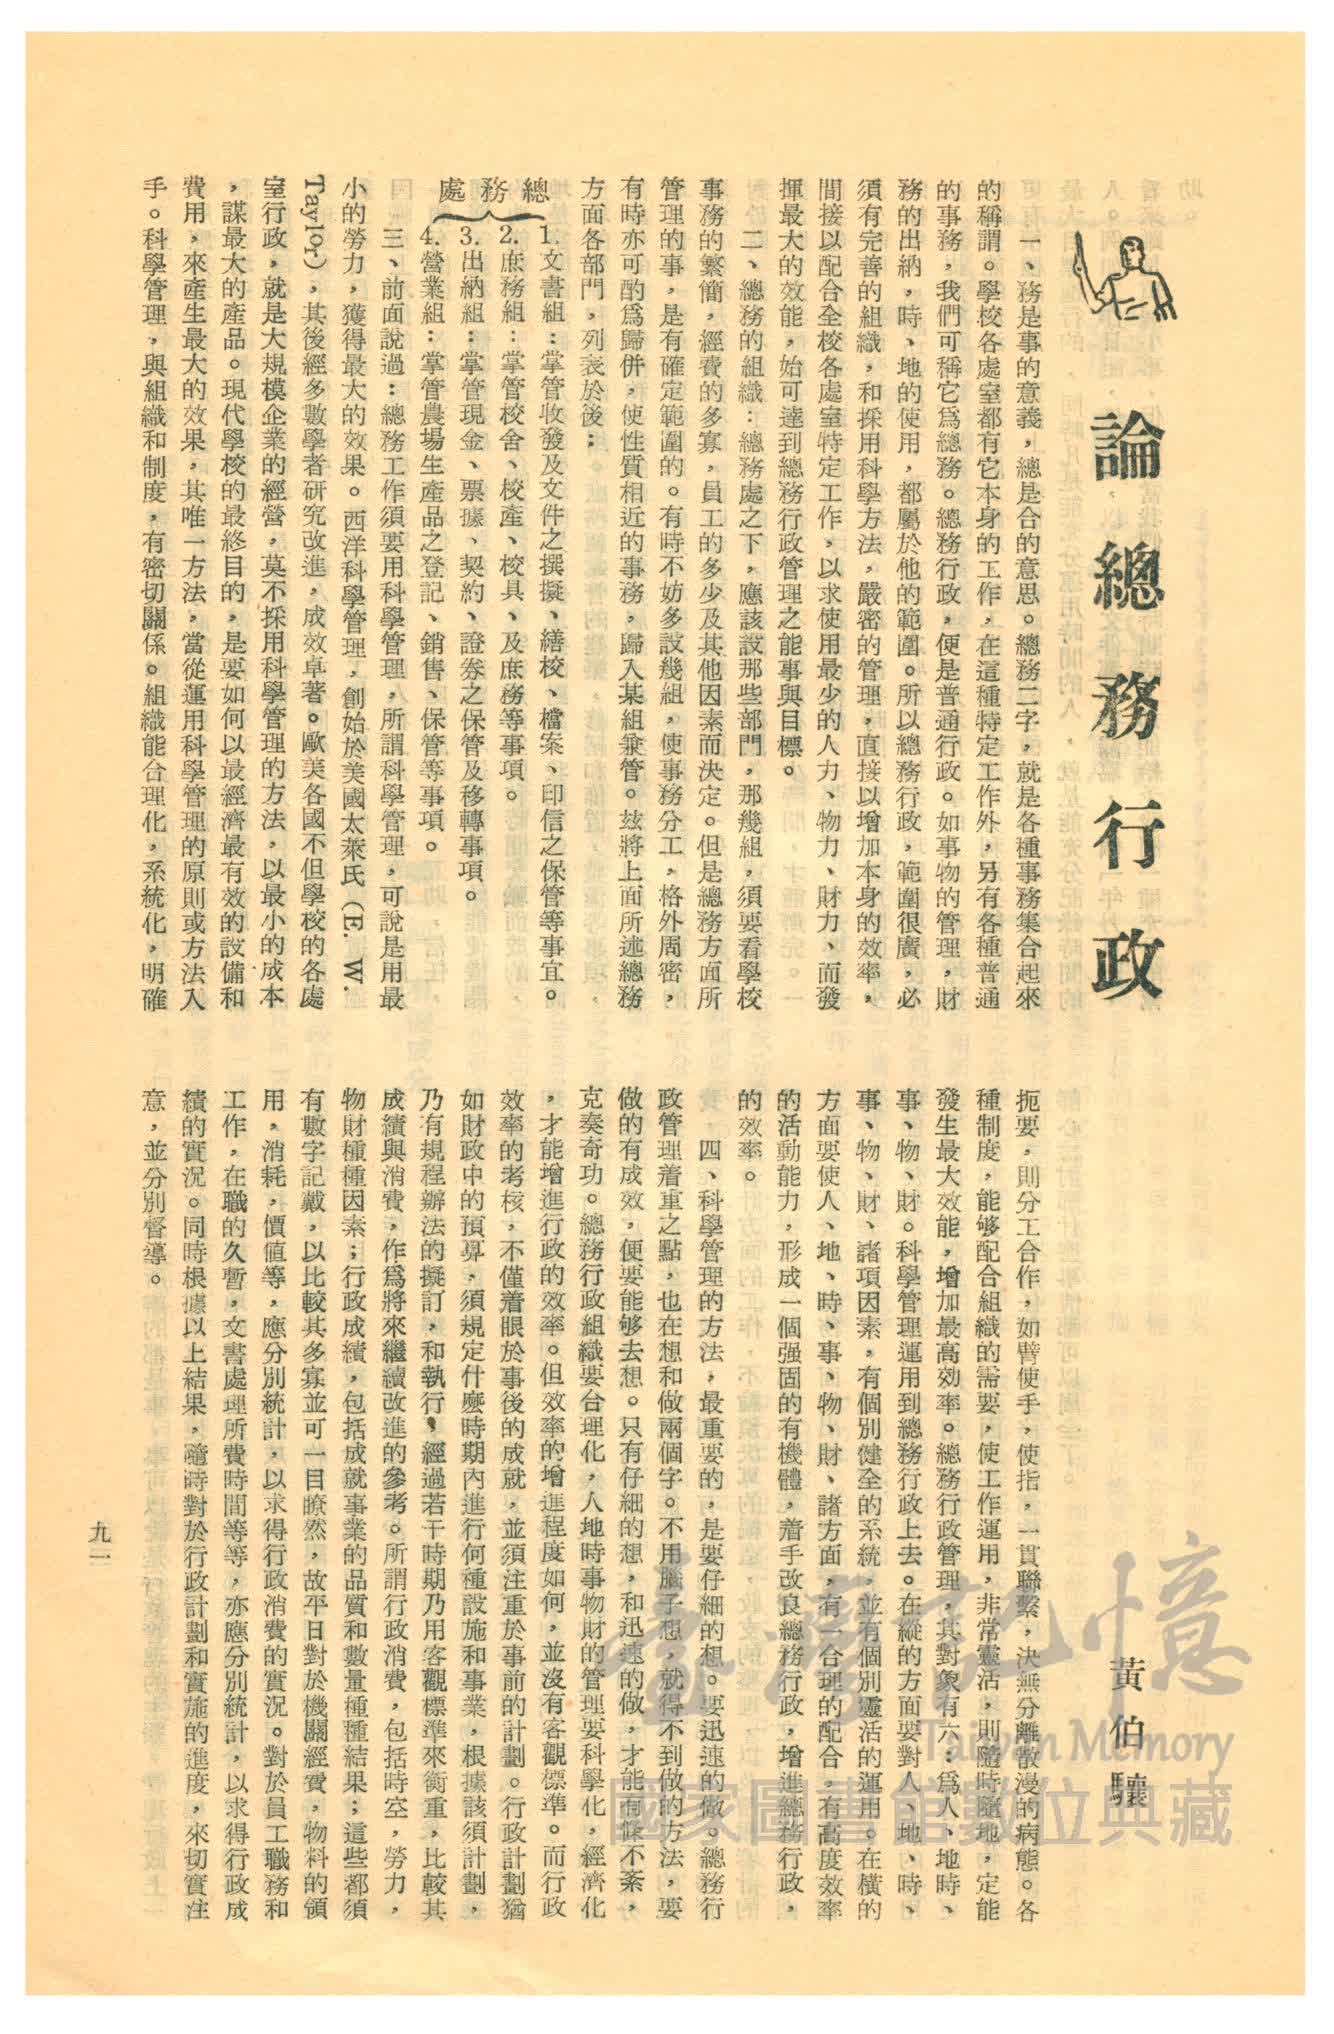 論總務行政
黃伯驤
一、務是事的意義，總是合的意思。總務二字，就是各種事務集合起來
的稱謂。學校各處室都有它本身的工作，在這種特定工作外，另有各種普通
的事務，我們可稱它爲總務。總務行政，便是普通行政。如事物的管理，財
務的出納，時、地的使用，都屬於他的範圍。所以總務行政，範圍很廣，必
須有完善的組織，和採用科學方法，嚴密的管理，直接以增加本身的效率，
間接以配合全校各處室特定工作，以求使用最少的人力、物力、財力、而發
揮最大的效能，始可達到總務行政管理之能事與目標。
二、總務的組織：總務處之下，應該設那些部門，那幾組，須要看學校
事務的繁簡，經費的多寡，員工的多少及其他因素而決定。但是總務方面所
管理的事，是有確定範圍的。有時不妨多設幾組，使事務分工，格外周密，
有時亦可酌爲歸併，使性質相近的事務，歸入某組兼管。玆將上面所述總務
方面各部門，列表於後：
總務處
1.文書組：掌管收發及文件之撰擬、繕校、檔案、印信之保管等事宜。
2.庶務組：掌管校舍、校產、校具、及庶務等事項。
3.出納組：掌管現金、票據、契約、證券之保管及移轉事項。
4.營業組：掌管農場生產品之登記、銷售、保管等事項。
三、前面說過：總務工作須要用科學管理，所謂科學管理，可說是用最
小的勞力，獲得最大的效果。西洋科學管理，創始於美國太萊氏（F. W.
Taylor），其後經多數學者研究改進，成效卓著。歐美各國不但學校的各處
室行政，就是大規模企業的經營，莫不採用科學管理的方法，以最小的成本
，謀最大的產品。現代學校的最終目的，是要如何以最經濟最有效的設備和
費用，來產生最大的效果，其唯一方法，當從運用科學管理的原則或方法入
手。科學管理，與組織和制度，有密切關係。組織能合理化，系統化，明確
扼要，則分工合作，如臂使手，使指，一貫聯繫，決無分離散漫的病態。各
種制度，能够配合組織的需要，使工作運用，非常靈活，則隨時隨地，定能
發生最大效能，增加最高効率。總務行政管理，其對象有六：爲人、地時、
事、物、財。科學管理運用到總務行政上去。在縱的方面要對人、地、時、
事、物、財、諸項因素，有個別健全的系統，並有個別靈活的運用。在橫的
方面要使人、地、時、事、物、財、諸方面，有一合理的配合，有高度效率
的活動能力，形成一個强固的有機體，着手改良總務行政，增進總務行政，
的效率。
四、科學管理的方法，最重要的，是要仔細的想。要迅速的做。總務行
政管理着重之點，也在想和做兩個字。不用腦子想，就得不到做的方法，要
做的有成效，便要能够去想。只有仔細的想，和迅速的做，才能有條不紊，
克奏奇功。總務行政組織要合理化，人地時事物財的管理要科學化，經濟化
，才能增進行政的效率。但效率的增進程度如何，並沒有客觀標準。而行政
效率的考核，不僅着眼於事後的成就，並須注重於事前的計劃。行政計劃猶
如財政中的預算，須規定什麼時期內進行何種設施和事業，根據該須計劃，
乃有規程辦法的擬訂，和執行，經過若干時期乃用客觀標準來衡重，比較其
成績與消費，作爲將來繼續改進的參考。所謂行政消費，包括時空，勞力，
物財種種因素；行政成績，包括成就事業的品質和數量種種結果；這些都須
有數字記戴，以比較其多寡並可一目瞭然，故平日對於機關經費，物料的領
用，消耗，價値等，應分別統計，以求得行政消費的實況。對於員工職務和
工作，在職的久暫，文書處理所費時間等等，亦應分別統計，以求得行政成
績的實況。同時根據以上結果，隨時對於行政計劃和實施的進度，來切實注
意，並分別督導。
九一
臺灣記憶
Taiwan Memory
國家圖書館數位典藏